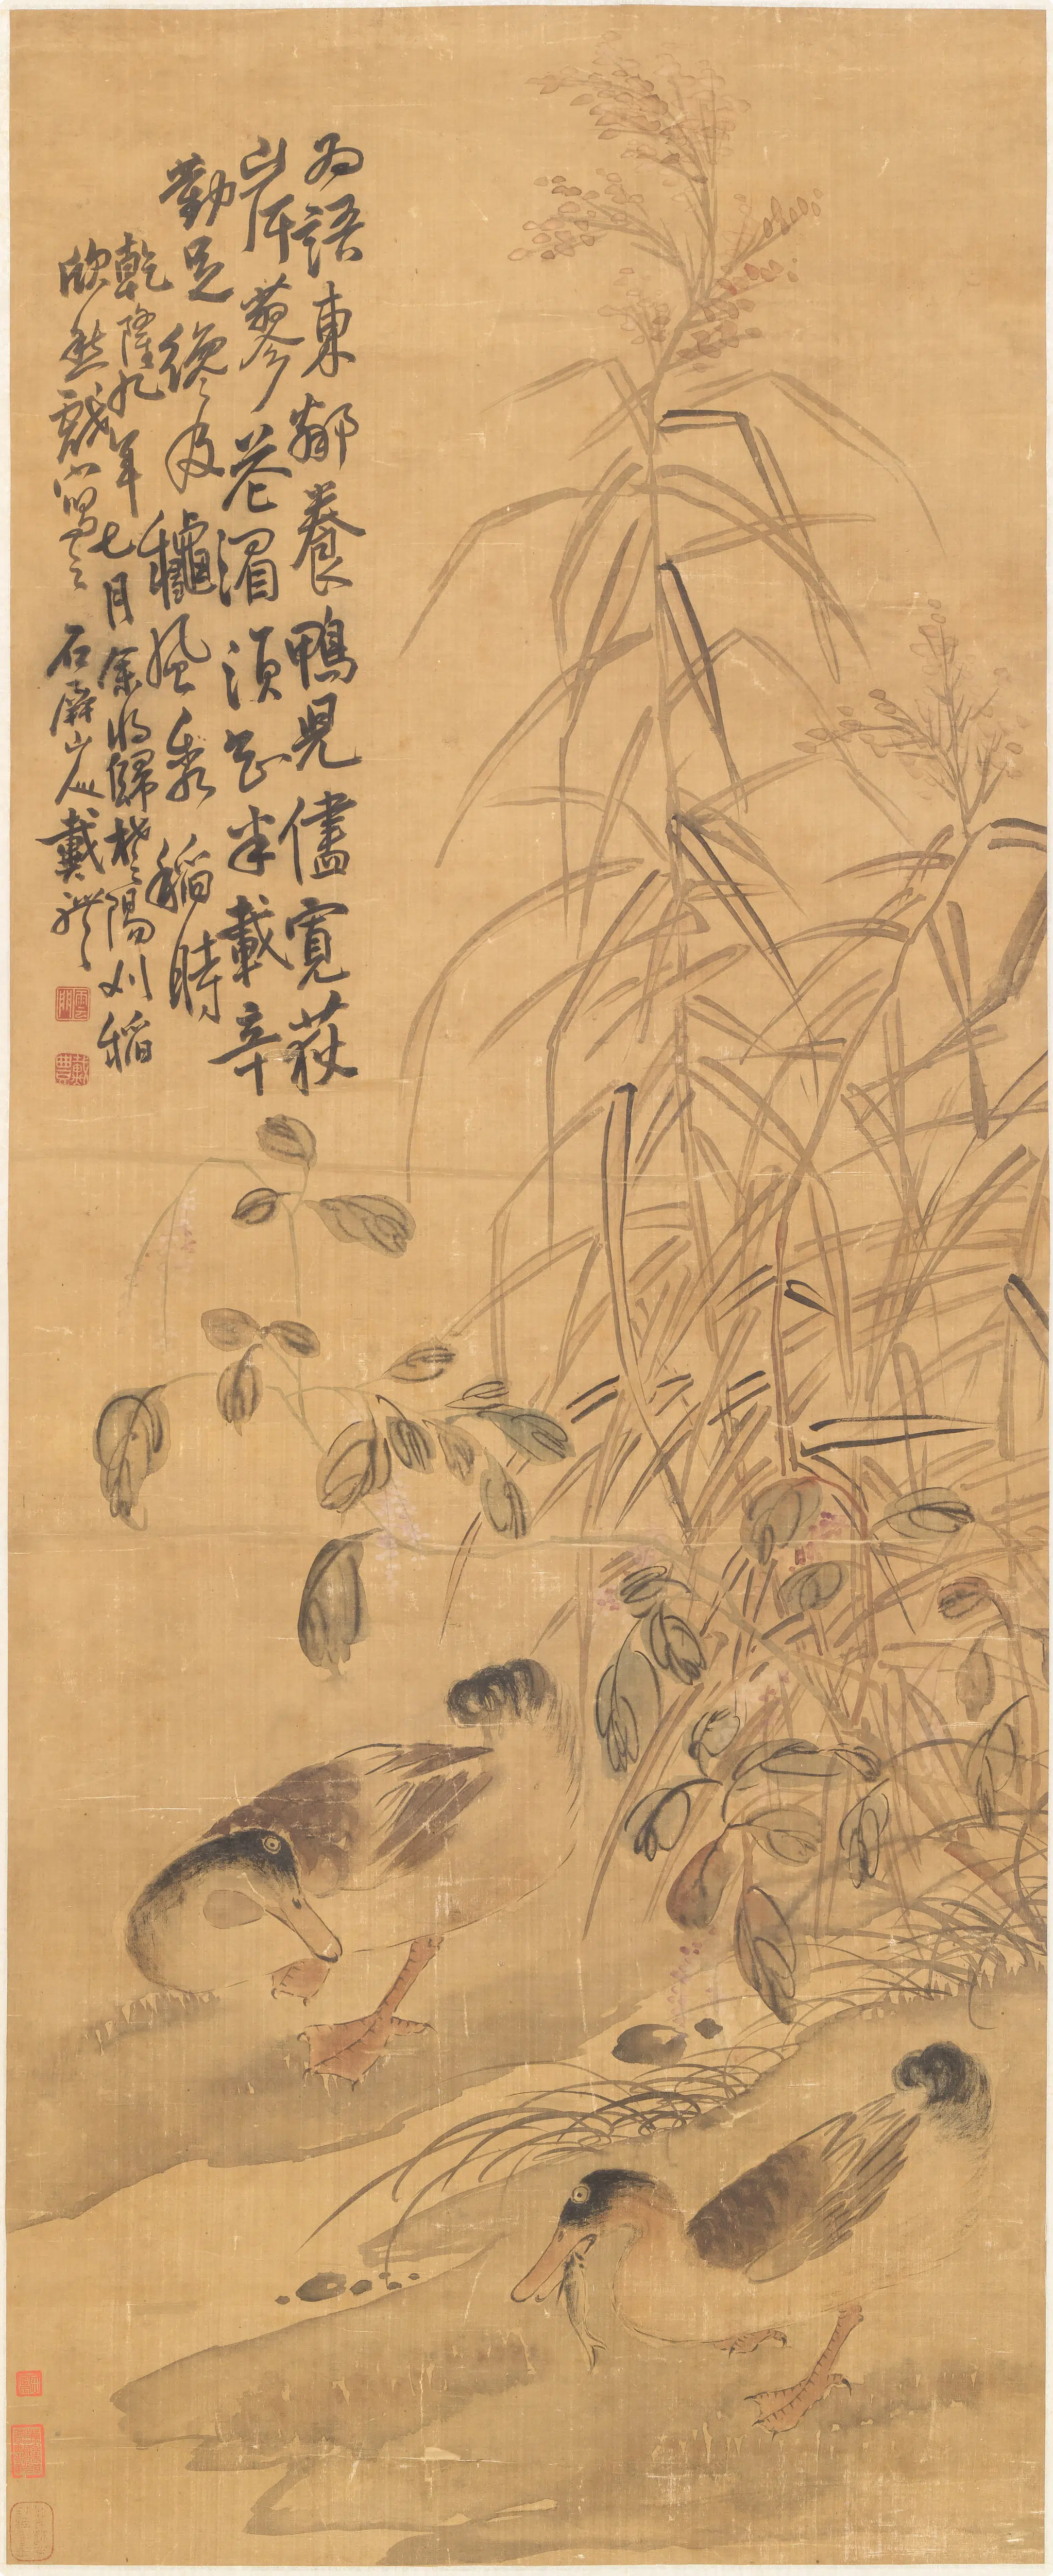 為語東鄰養鴨兒儘寬荻
岸蓼花湄須知半載辛
勤足纔及龝風黍稻時
乾隆九年七月余將歸楚陽刈稻
欣然戲寫云石屏山人戴禮